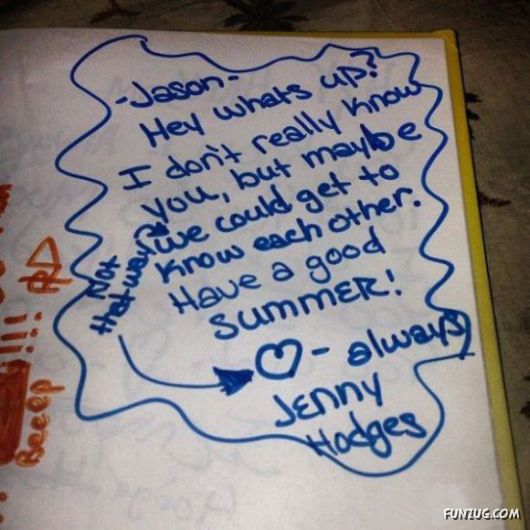 -Jason-
Hey whats up?
I don't really know
you, but maybe
we could get to
know each other.
Have a good
SUMMER!
♡- always
JENNY
Hodges
Not
that way
!!!!
Beeep
FUNZUG.COM